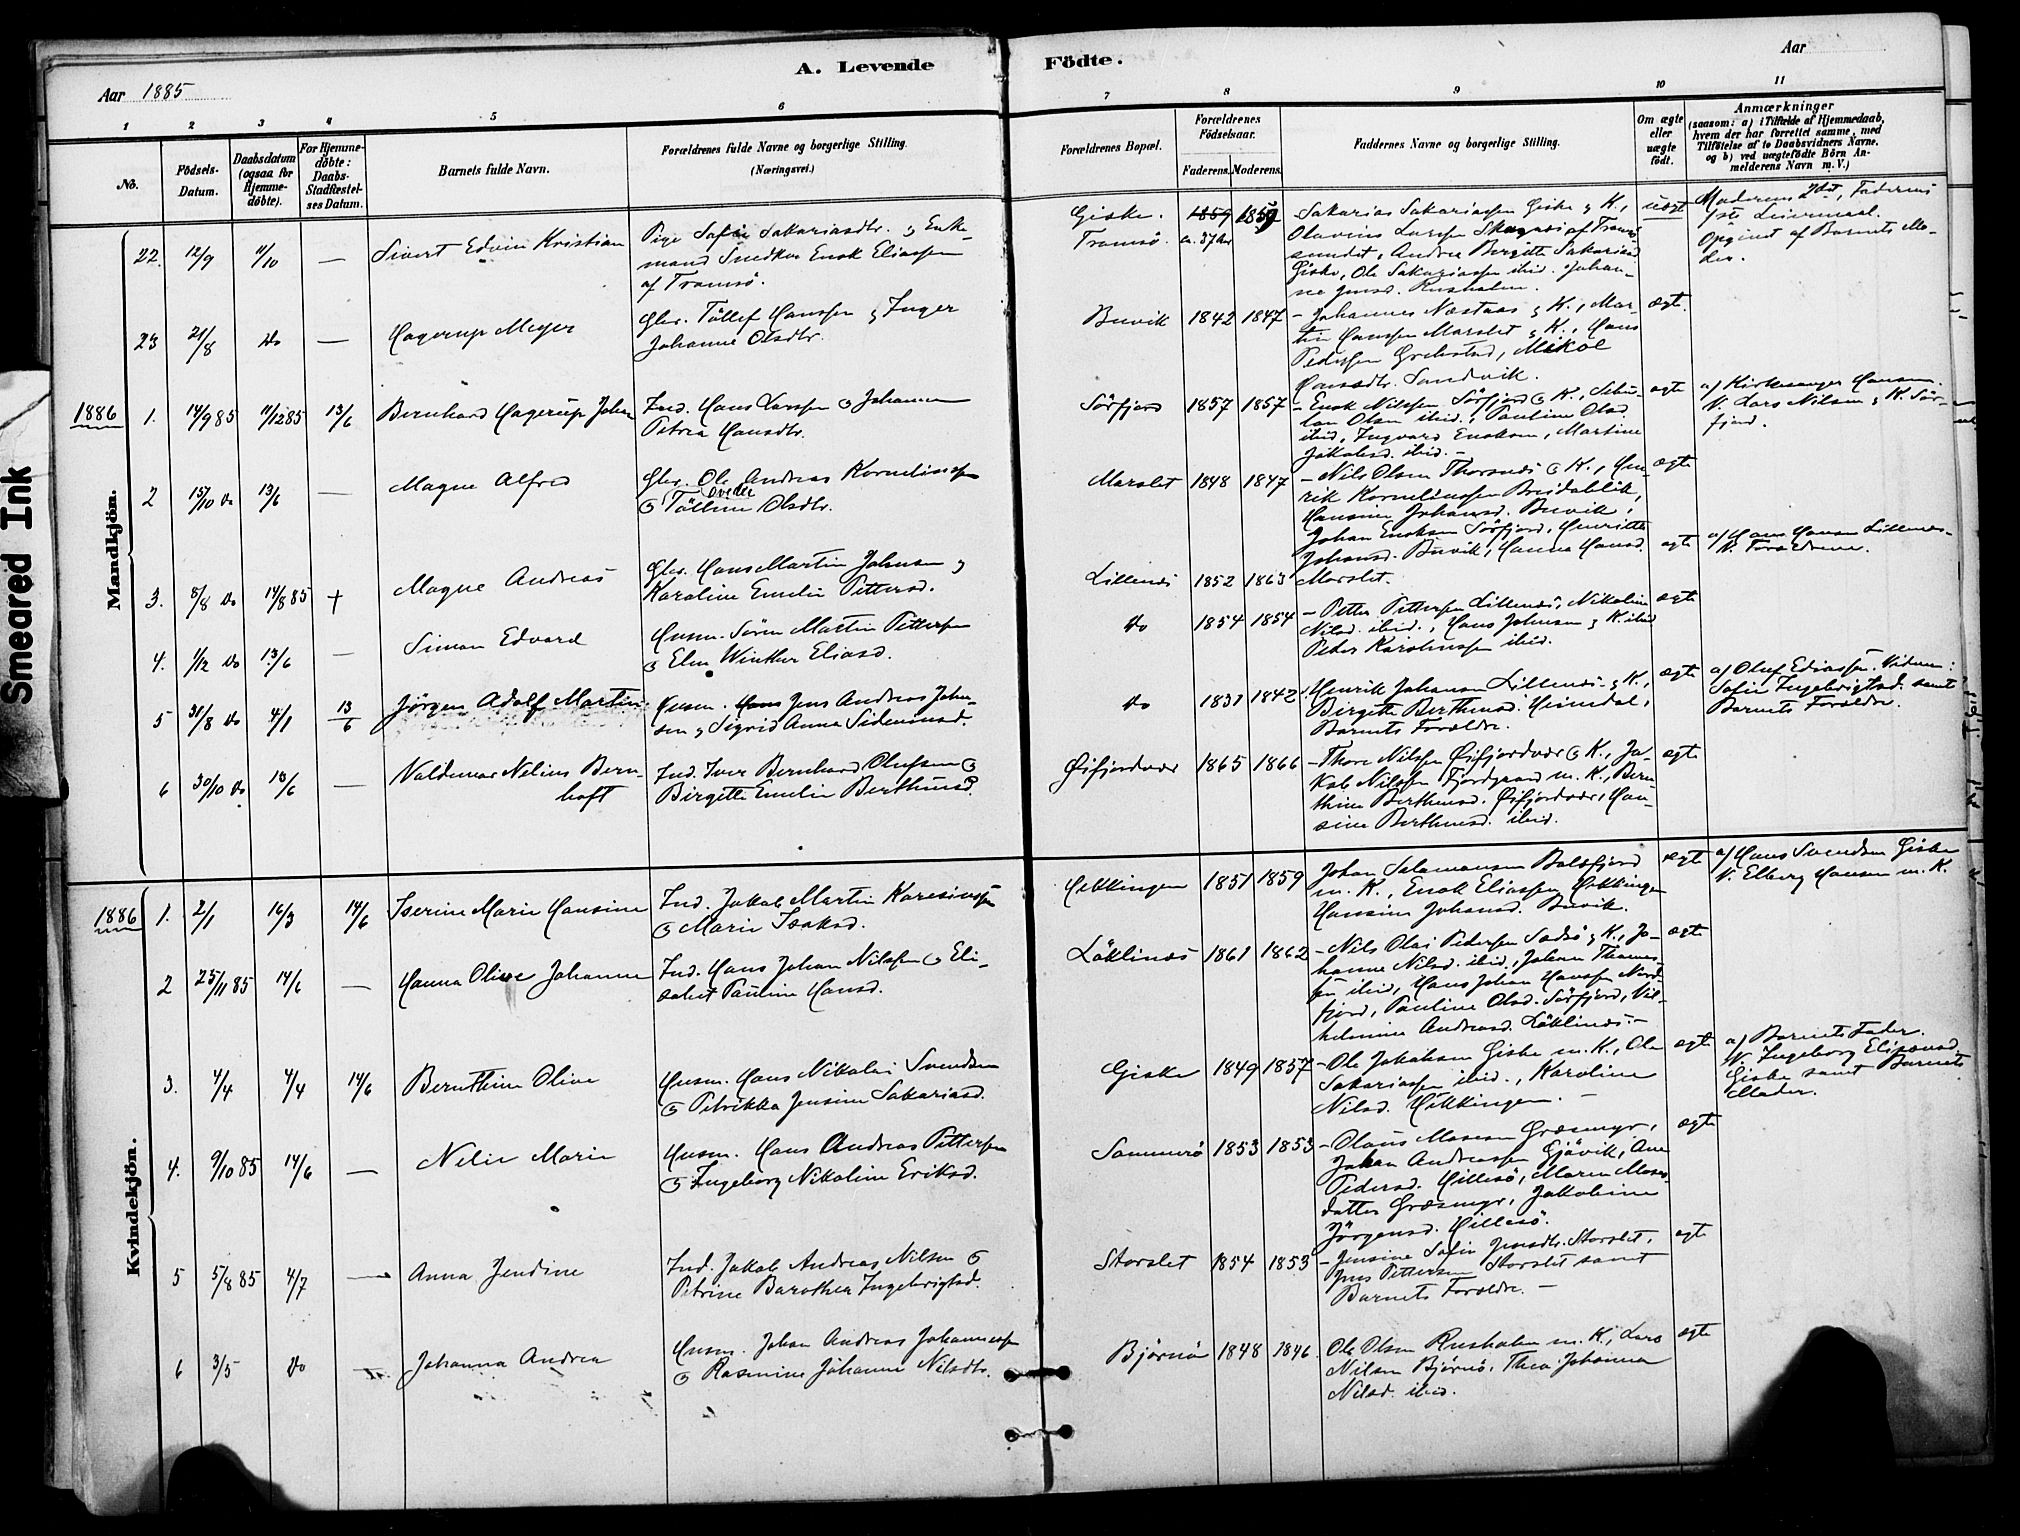 A. Levende Födte.
Aar 1885
Aar
1 2 3 4 5 6 7 8 9 10 11
No.
Födsels-Datum.
Daabsdatum (ogsaa for Hjemme-döbte).
For Hjemme-döbte: Daabs-Stadfæstel-ses Datum.
Barnets fulde Navn.
Forældrenes fulde Navne og borgerlige Stilling.
(Næringsvei.)
Forældrenes Bopæl.
Forældrenes Födselsaar.
Faderens. Moderens.
Faddernes Navne og borgerlige Stilling.
Om ægte eller uægte födt.
Anmærkninger
(saasom: a) i Tilfælde af Hjemmedaab,
hvem der har forrettet samme, med
Tilföielse af to Daabsvidners Navne.
og b) ved uægtefödte Börn An-
melderens Navn m. V.)
Smeared Ink
Mandkjön.
22. 12/9 11/10 — Sivert Edvin Kristian
Pige Sofie Sakariasdtr. og Enke-
mand Snedker Enok Eliassen
af Tromsö.
Giske.
Tromsö.
1859 1859
ca. 37 Aar
Sakarias Sakariassen Giske og K.,
Olavius Larssen af Troms-
sundet, Andrea Bergitte Sakariasd.
Giske, Ole Sakariassen ibid. Johan-
ne Jensd. Rusholm.
uægt
Moderens 2det, Faderens
1ste Leiermaal.
Opgivet af Barnets Mo-
der.
23 21/8 do — Hagerup Meyer
Gbr. Töllef Hanssen og Inger
Johanne Olsdtr.
Buvik 1842 1847
– Johannes Næstaas og K., Mar-
tin Hanssen Marslet og K., Hans
Pederssen Grebstad, Mikal
Hansdtr. Sandvik.
ægt.
1886
1. 14/9 85 11/12 85 13/6 Bernhard Hagerup Johan
Ind. Hans Larssen & Johanna
Petrea Hansdtr.
Sörfjord 1857 1857
– Enok Nilssen Sörfjord & K.,
Olsen ibid., Pauline Olsd.
ibid, Ingvard Enoksen, Martine
Jakobsd. ibid. –
ægte
a/ Kirkesanger Hansen.
V. Lars Nilsen & K. Sör-
fjord.
2 15/10 do 13/6 — Magne Alfred
Gbr. Ole Andreas Korneliussen
& Tölline Ovedie Olsdtr.
Marslet 1848 1847
– Nils Olsen Thorsnes & K., Hen-
rik Korneliussen Breidablik,
Hansine Johansd. Buvik,
Johan Enoksen Sörfjord, Henritte
Johansd. Buvik, Hanna Hansd.
Marslet.
ægte
3. 8/8 do 14/8 85 + Magne Andreas
Gbr. Hans Martin Johnsen og
Karoline Emelie Pettersd.
Lillenes 1852 1863
ægte
a/ Hans Hansen Lillenes-
V. Forældrene.
4. 1/12 do 13/6 — Simon Edvard
Husm. Sören Martin Pettersen
& Elen Winther Eliasd.
do 1854 1854
– Petter Pettersen Lillenes, Nikoline
Nilsd. ibid., Hans Johnsen og K. ibid
Peder Karolussen ibid.
ægte
5 31/8 do 4/1 13/6 Jörgen Adolf Martin
Husm. Hans Jens Andreas John-
sen og Sigrid Anna Sidenusd.
do 1831 1842
Henrik Johansen Lillenes og K.,
Birgitte Berthensd. Heimdal,
Barnets Forældre.
ægte
a/ Oluf Ediassen. Vidner:
Sofie Ingebrigtsd. samt
Barnets Forældre.
6 30/10 do 13/6 — Valdemar Nelius Bern-
hoft
Ind. Iver Bernhard Olufsen &
Birgitte Emelie Berthensd.
Øifjordvær 1865 1866
– Thore Nilssen Øifjordvær & K., Ja-
kob Nilssen Fjordgaard m. K., Beru-
thine Berthensd. Øifjordvær, Han-
sine Berthensd. ibid.
ægte
Kvindekjön.
1886
1. 2/1 16/3 14/6 Iserine Marie Hansine
Ind. Jakob Martin Karesiussen
& Marie Isaksd.
Hekkingen 1851 1859
Johan Salamonsen Balsfjord
m. K., Enok Eliassen Hekkingen
Hansine Johansd. Buvik.
ægte
a/ Hans Svendsen Giske
V. Elberg Hansen m. K.
2 25/11 85 14/6 — Hanna Olive Johanne
Ind. Hans Johan Nilssen & Eli-
sabet Pauline Hansd.
Löklines 1861 1862
– Nils Olai Pedersen Sadsö og K., Jo-
hanna Nilsd. ibid., Johan Thomes-
sen ibid, Hans Johan Hanssen Nord-
fjord, Pauline Olsd. Sörfjord, Vil-
helmine Andreasd. Löklines. –
ægte
3. 4/4 4/4 14/6 Bernthine Olive
Husm. Hans Nikolai Svendsen
& Petrikka Jensine Sakariasd.
Giske 1849 1857
– Ole Jakobsen Giske m. K., Ole
Sakariassen ibid., Karoline
Nilsd. Hekkingen. –
ægte
a/ Barnets Fader.
V. Ingeborg
Giske samt Barnets
Moder.
4. 9/10 85 14/6 — Nelie Marie
Husm. Hans Andreas Pettersen
& Ingeborg Nikoline Eriksd.
Sommerö 1853 1853
– Olaus Mosesen Græsmyr,
Johan Andreassen Gjövik, Ane
Pedersd. Hillesö, Maren Moses-
datter Græsmyr, Jakobine
Jörgensd. Hillesö.
ægte
5 5/8 85 4/7 — Anna Jendine
Ind. Jakob Andreas Nilsen &
Petrine Barothea Ingebrigtsd.
Storslet 1854 1853
– Jensine Sofie Jensdtr. Storslet,
Jens Pettersen Storslet samt
Barnets Forældre. –
ægte
6 3/5 do — Johanna Andrea
Husm. Johan Andreas Johannessen
& Rasmine Johanne Nilsdtr.
Bjørnö 1848 1846.
Ole Olsen Rusholm m. K., Lars
Nilsen Bjørnö, Thea Johanna
Nilsd. ibid.
ægte